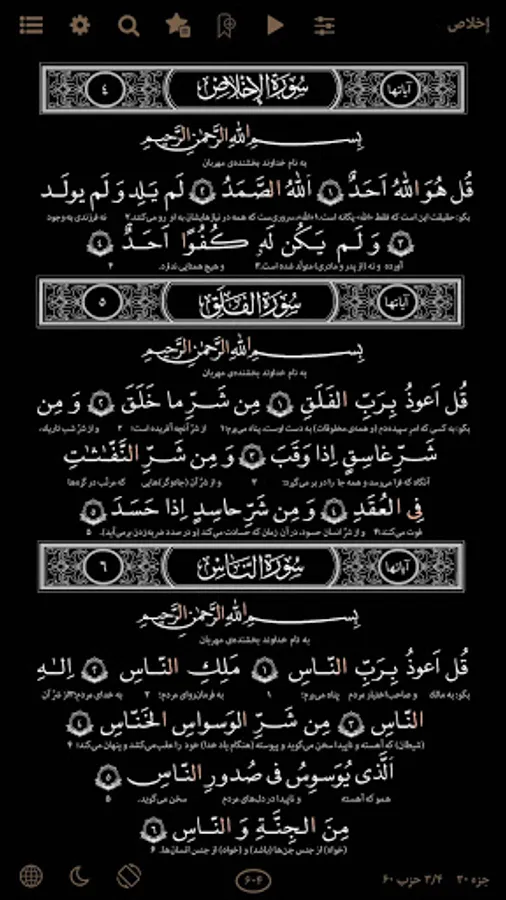 إخلاص
آیاتها سُورَةُ الإِخلاص ٤
بِسمِ اللهِ الرَّحمٰنِ الرَّحیمِ
به نام خداوند بخشنده‌ی مهربان
قُل هُوَ اللهُ اَحَدٌ ١ اَللهُ الصَّمَدُ ٢ لَم یَلِد وَ لَم یولَد
بگو: حقیقت این است که فقط «الله» یگانه است.۱ «الله» سروری‌ست که همه در نیازهایشان به او رو می‌کنند.۲ نه فرزندی به وجود
٣ وَ لَم یَکُن لَهٗ کُفُوًا اَحَدٌ ٤
آورده و نه [از پدر و مادری] متولّد شده است.۳ و هیچ همتایی ندارد. ۴
آیاتها سُورَةُ الفَلَق ٥
بِسمِ اللهِ الرَّحمٰنِ الرَّحیمِ
به نام خداوند بخشنده‌ی مهربان
قُل اَعوذُ بِرَبِّ الفَلَقِ ١ مِن شَرِّ ما خَلَقَ ٢ وَ مِن
بگو: به کسی که امر سپیده‌دم (و همه‌ی مخلوقات) به دست اوست، پناه می‌برم؛۱ از شرّ آنچه آفریده است؛ ۲ و از شرّ شب تاریک،
شَرِّ غاسِقٍ اِذا وَقَبَ ٣ وَ مِن شَرِّ النَّفّٰثٰتِ
آنگاه که فرا می‌رسد و همه جا را در بر می‌گیرد؛ ۳ و از شرّ آن (جادوگر)هایی که مرتّب در گره‌ها
فِی العُقَدِ ٤ وَ مِن شَرِّ حاسِدٍ اِذا حَسَدَ ٥
فوت می‌کنند؛۴ و از شرّ انسان حسود، در آن زمان که حسادت می‌کند (و در صدد ضربه‌زدن برمی‌آید). ۵
آیاتها سُورَةُ النّاس ٦
بِسمِ اللهِ الرَّحمٰنِ الرَّحیمِ
به نام خداوند بخشنده‌ی مهربان
قُل اَعوذُ بِرَبِّ النّاسِ ١ مَلِکِ النّاسِ ٢ اِلٰهِ
بگو: به مالک و صاحب‌اختیار مردم پناه می‌برم؛ ۱ به فرمانروای مردم؛ ۲ به خدای مردم؛۳ از شرّ آن
النّاسِ ٣ مِن شَرِّ الوَسواسِ الخَنّاسِ ٤
(شیطان) که آهسته و ناپیدا سخن می‌گوید و پیوسته (هنگام یاد خدا) خود را عقب می‌کشد و پنهان می‌کند؛ ۴
اَلَّذی یُوَسوِسُ فی صُدورِ النّاسِ ٥
همو که آهسته و ناپیدا در دل‌های مردم سخن می‌گوید. ۵
مِنَ الجِنَّةِ وَ النّاسِ ٦
(خواه) از جنس جن‌ها (باشد) و (خواه) از جنس انسان‌ها. ۶
جزء ۳۰ ۳/۴ حزب ۶۰ ۶۰۴